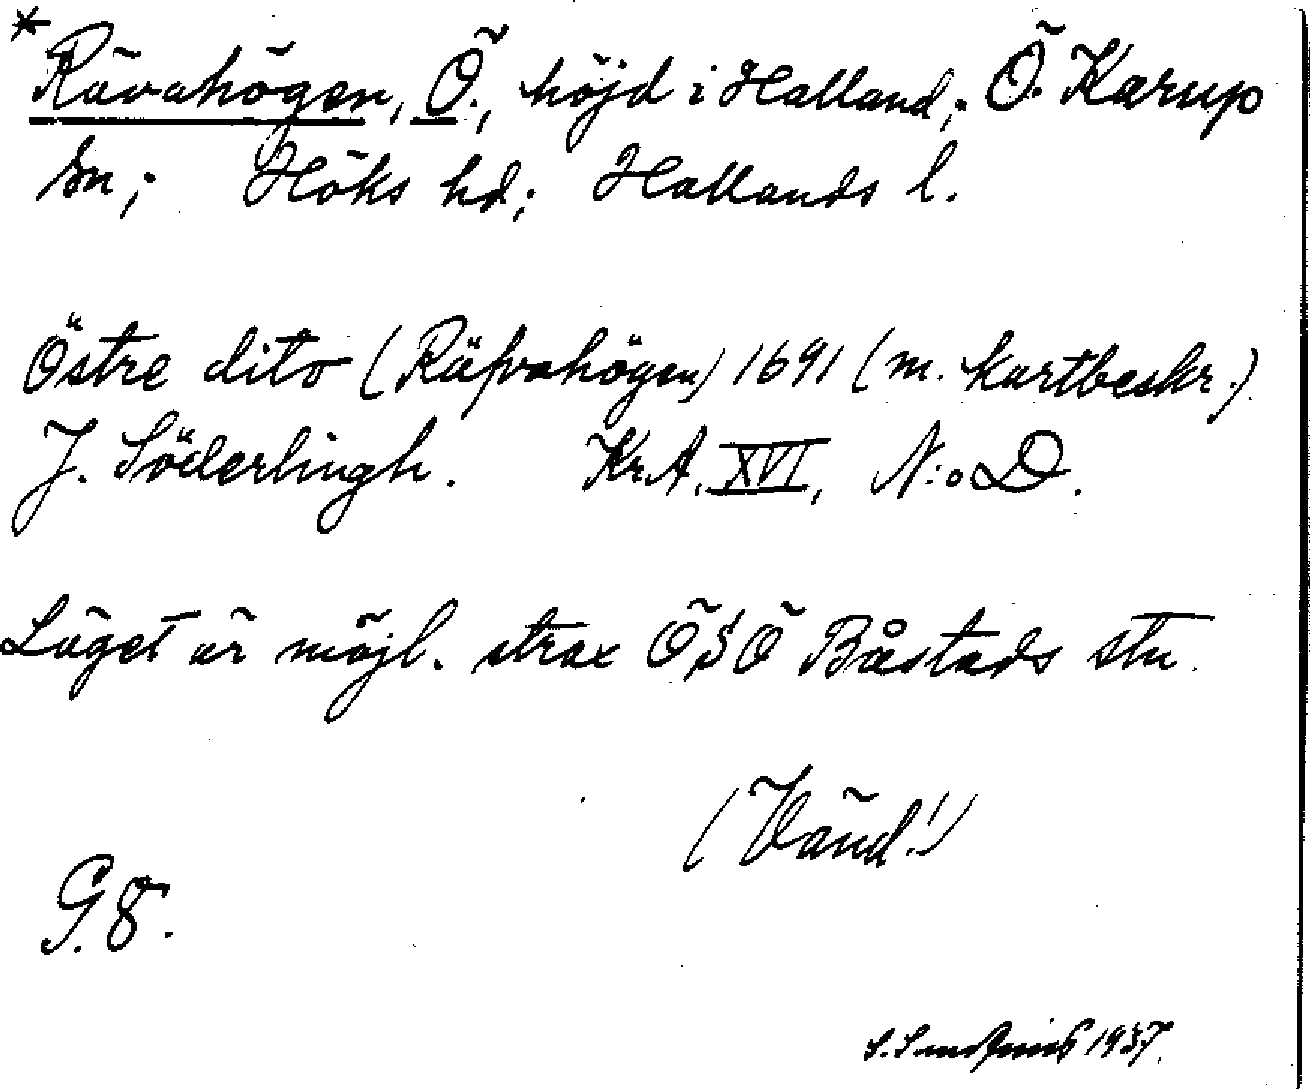 * Rävahögen, Ö., höjd i Halland; Ö. Karup
sn; Höks hd; Hallands l.
Östre dito (Räfvahögen) 1691 (m. kartbeskr.)
J. Söderlingh. Kr.A. XVI, N:o D.
Läget är möjl. strax ÖSÖ Båstads stn.
(Vänd!)
G. 8.
1937.